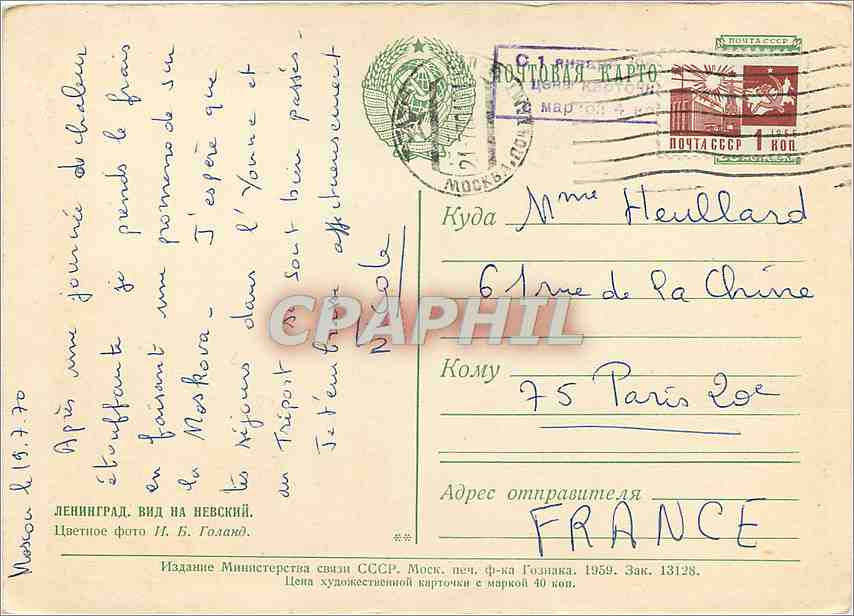 Moscou le 19.7.70
Après une journée de chaleur
étouffante je prends le frais
en faisant une promenade sur
la Moskova - J'espère que
tes séjours dans l'Yonne et
au Tréport se sont bien passés -
Je t'embrasse affectueusement
Nicole
ПОЧТА СССР
ПОЧТОВАЯ КАРТО
С 1 января
цена карточки
с маркой 4 ко
МОСКВА
1966
ПОЧТА СССР 1 КОП.
Куда Mme Heullard
61 rue de la Chine
Кому
75 Paris 20e
Адрес отправителя
FRANCE
CPAPHIL
ЛЕНИНГРАД. ВИД НА НЕВСКИЙ.
Цветное фото И. Б. Голанд.
**
Издание Министерства связи СССР. Моск. печ. ф-ка Гознака. 1959. Зак. 13128.
Цена художественной карточки с маркой 40 коп.